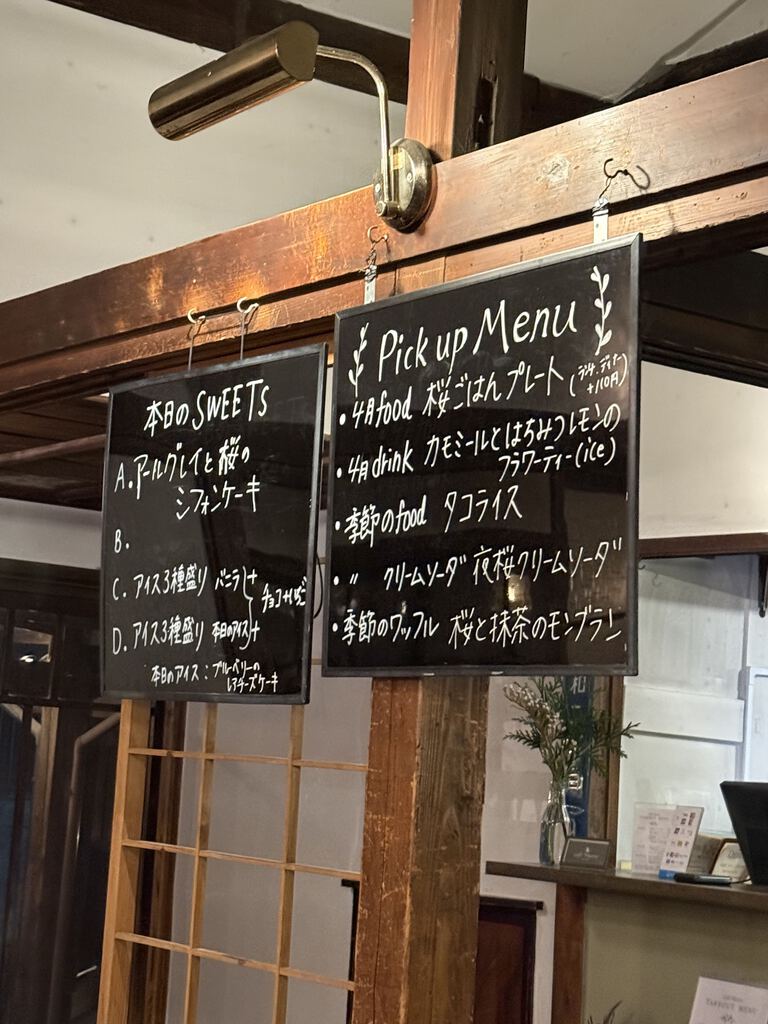 本日のSWEETs
A. アールグレイと桜の
シフォンケーキ
B.
C. アイス3種盛り バニラ+
D. アイス3種盛り 本日のアイス+
チョコ+いちご
本日のアイス：ブルーベリーの
レアチーズケーキ
Pick up Menu
・4月food 桜ごはんプレート (ランチ・ディナー
+110円)
・4月drink カモミールとはちみつレモンの
フラワーティー(ice)
・季節のfood タコライス
・〃 クリームソーダ 夜桜クリームソーダ
・季節のワッフル 桜と抹茶のモンブラン
和